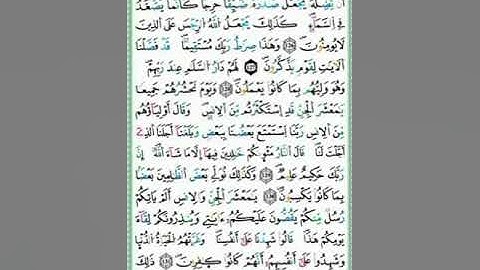 أَنْ يُّضِلَّهُۥ يَجْعَلْ صَدْرَهُۥ ضَيِّقًا حَرِجًا كَأَنَّمَا يَصَّعَّدُ
فِي اِ۬لسَّمَآءِ كَذَٰلِكَ يَجْعَلُ اُ۬للَّهُ اُ۬لرِّجْسَ عَلَى اَ۬لذِينَ
لَا يُومِنُونَ وَهَٰذَا صِرَٰطُ رَبِّكَ مُسْتَقِيمًا قَدْ فَصَّلْنَا
اَ۬لَايَٰتِ لِقَوْمٍ يَذَّكَّرُونَ لَهُمْ دَارُ اُ۬لسَّلَٰمِ عِندَ رَبِّهِمْ
وَهُوَ وَلِيُّهُم بِمَا كَانُوا يَعْمَلُونَ وَيَوْمَ نَحْشُرُهُمْ جَمِيعًا
يَٰمَعْشَرَ اَ۬لْجِنِّ قَدِ اِ۪سْتَكْثَرْتُم مِّنَ اَ۬لِانسِ وَقَالَ أَوْلِيَآؤُهُم
مِّنَ اَ۬لِانسِ رَبَّنَا اَ۪سْتَمْتَعَ بَعْضُنَا بِبَعْضٍ وَبَلَغْنَا أَجَلَنَا اَ۬لذِي
أَجَّلْتَ لَنَا قَالَ اَ۬لنَّارُ مَثْوَيٰكُمْ خَٰلِدِينَ فِيهَا إِلَّا مَا شَآءَ اَ۬للَّهُ إِنَّ
رَبَّكَ حَكِيمٌ عَلِيمٌ وَكَذَٰلِكَ نُوَلِّي بَعْضَ اَ۬لظَّٰلِمِينَ بَعْضًا
بِمَا كَانُوا يَكْسِبُونَ يَٰمَعْشَرَ اَ۬لْجِنِّ وَالِانسِ أَلَمْ يَاتِكُمْ
رُسُلٌ مِّنكُمْ يَقُصُّونَ عَلَيْكُمُ ءَايَٰتِي وَيُنذِرُونَكُمْ لِقَآءَ
يَوْمِكُمْ هَٰذَا قَالُوا شَهِدْنَا عَلَىٰ أَنفُسِنَا وَغَرَّتْهُمُ اُ۬لْحَيَوٰةُ اُ۬لدُّنْيَا
وَشَهِدُوا عَلَىٰ أَنفُسِهِمُ أَنَّهُمْ كَانُوا كَٰفِرِينَ ذَٰلِكَ